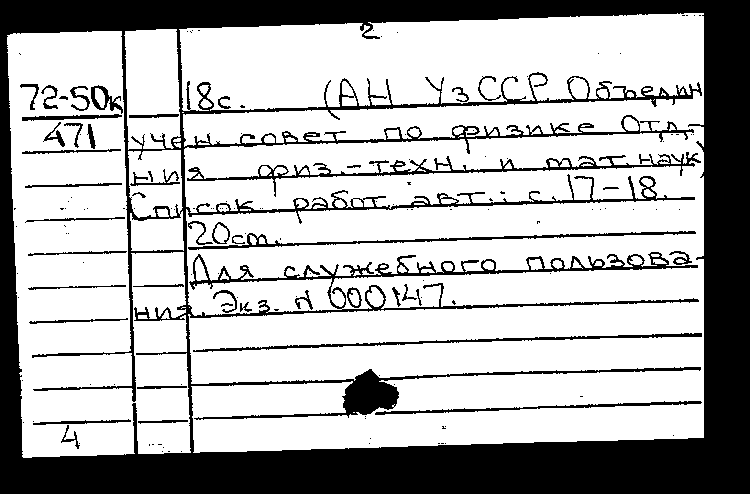 2
72-50к 18с. (АН УзССР. Объедин
471 учен. совет по физике Отд-
ния физ.-техн. и мат. наук)
Список работ авт.: с. 17-18.
20см.
Для служебного пользова-
ния. Экз. N 000147.
4